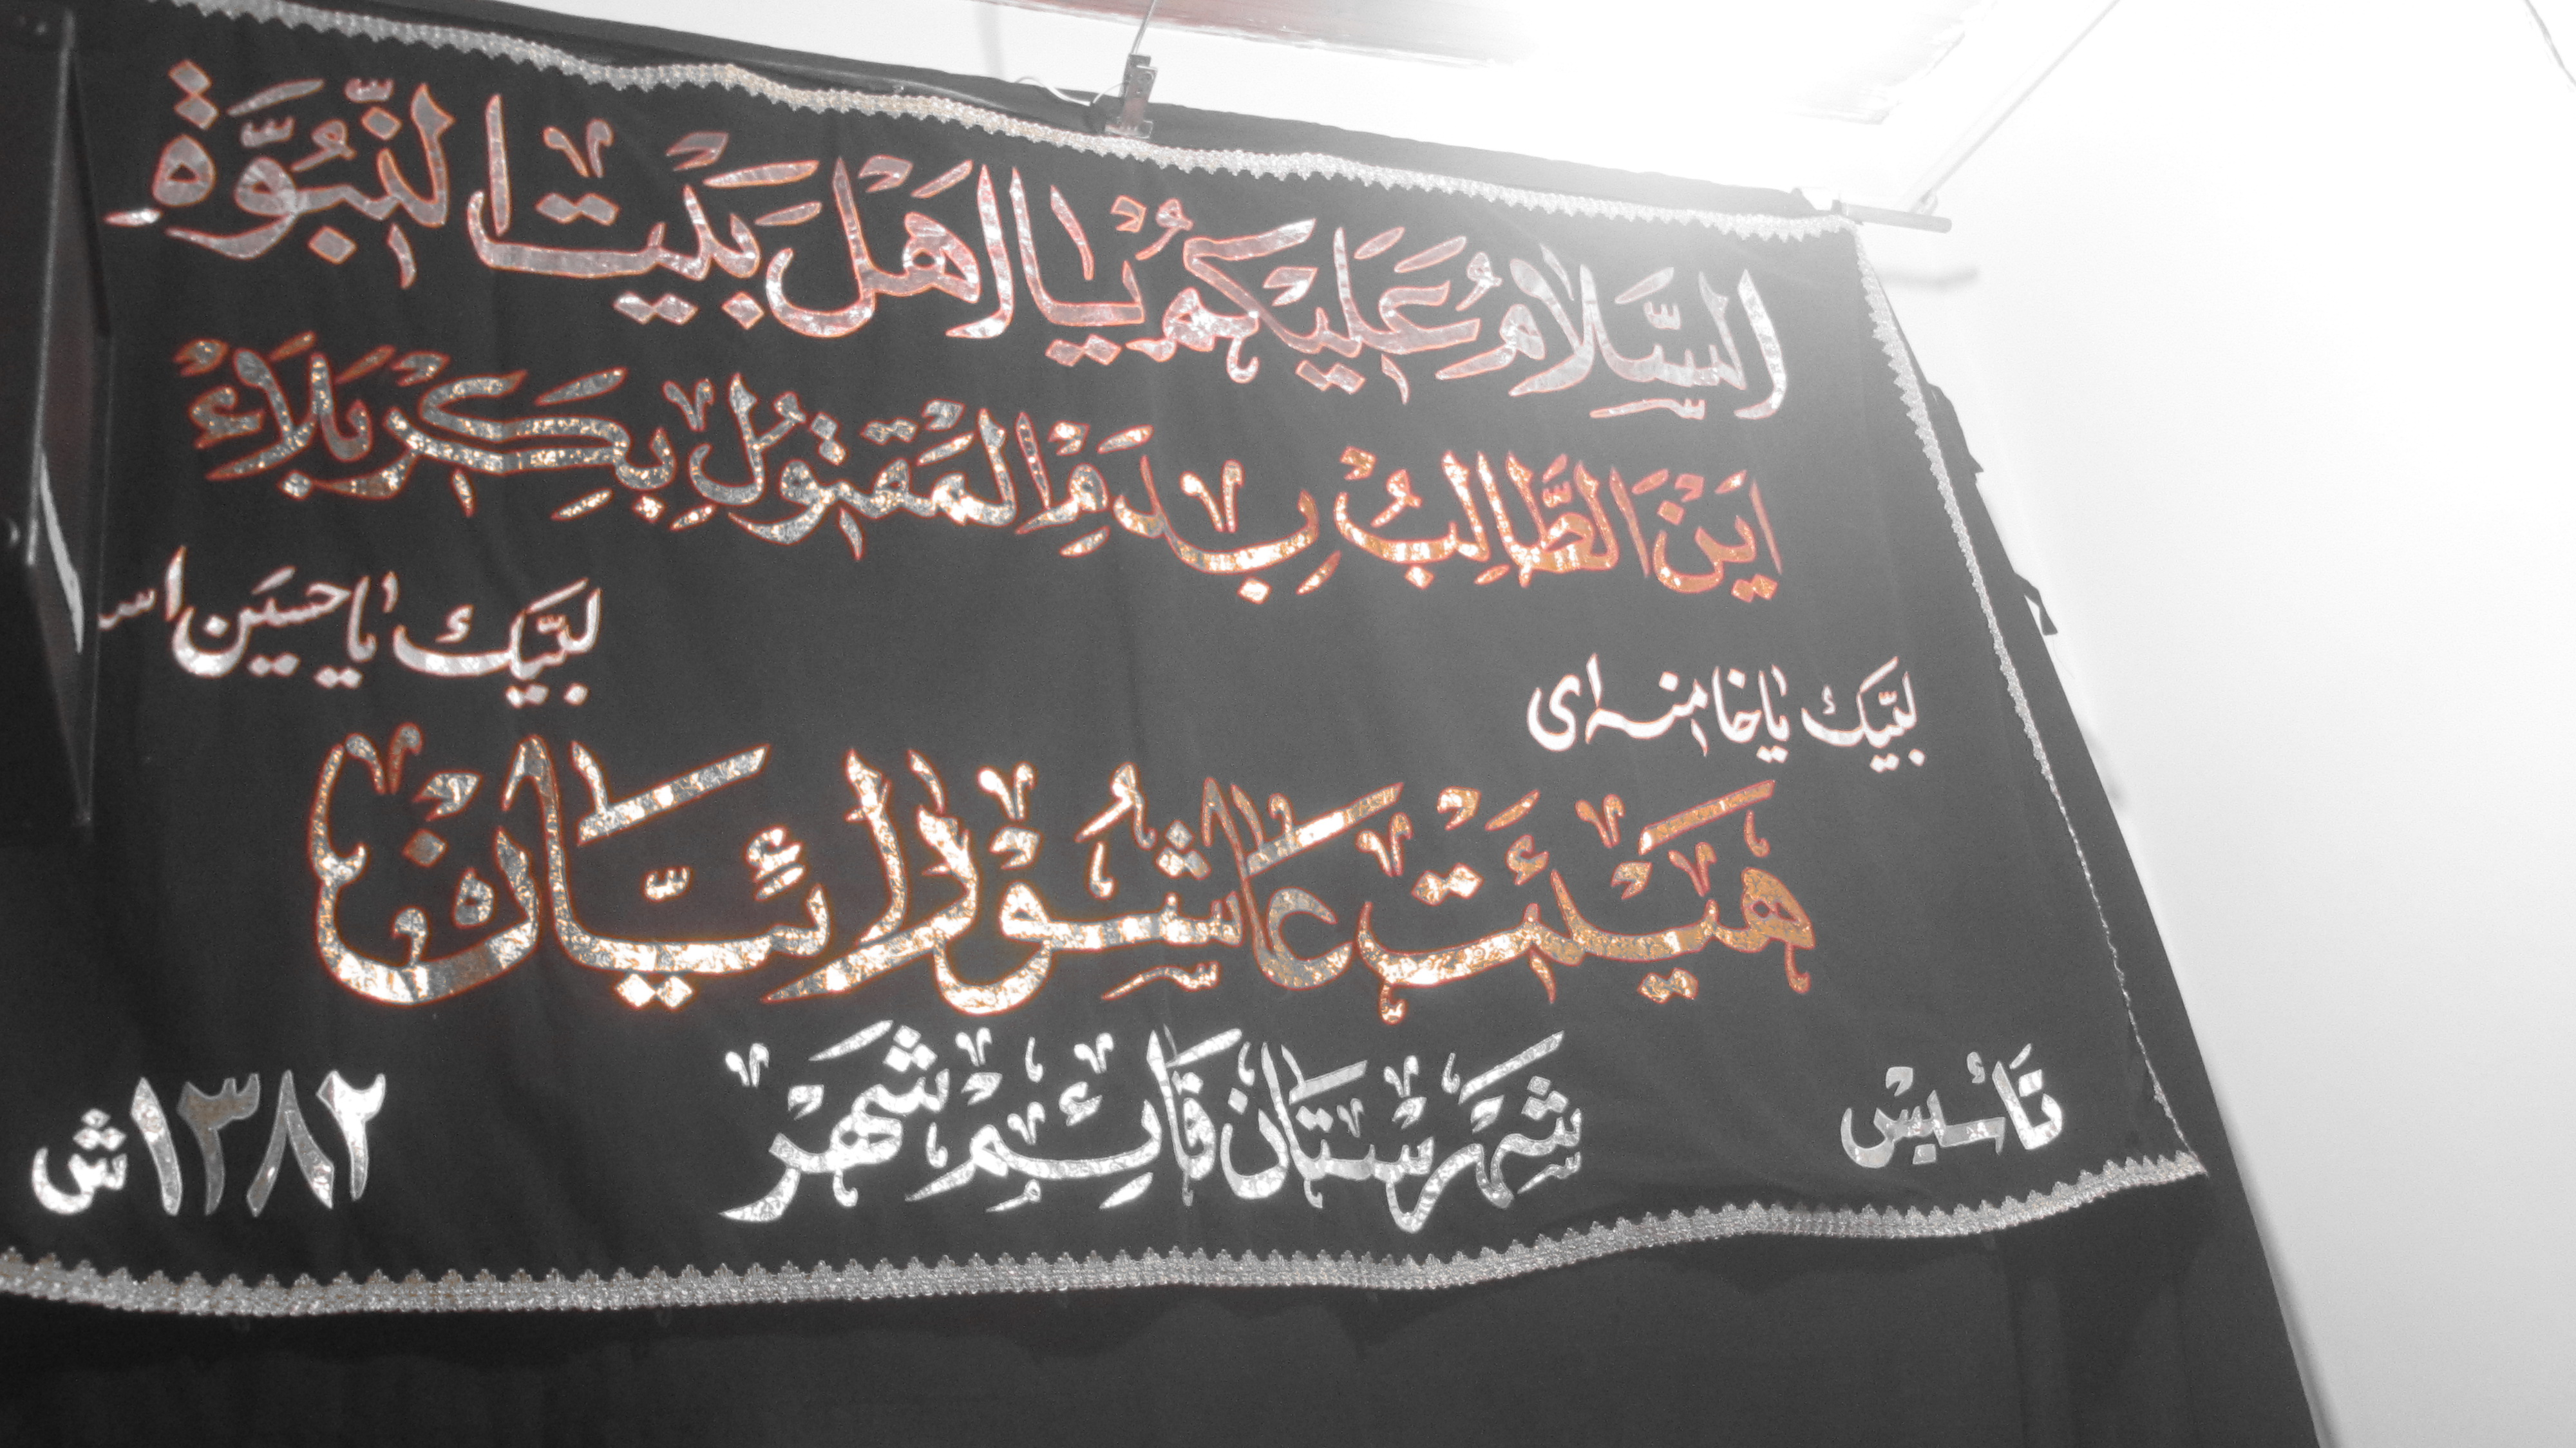 السَّلامُ عَلَيْكُم يْا اَهْلَ بَيْتِ النَّبُوَّة
اَيْنَ الطَّالِبُ بِدَمِ الْمَقْتُولِ بِكَرْبَلاءْ
لبّیک یا خامنه ای لبَّیک یا حسَین است
هَیْئَت عاشُورائیّان
تَأسیسْ شَهْرسْتَان قَائِمْ شَهْرْ ۱۳۸۲ش